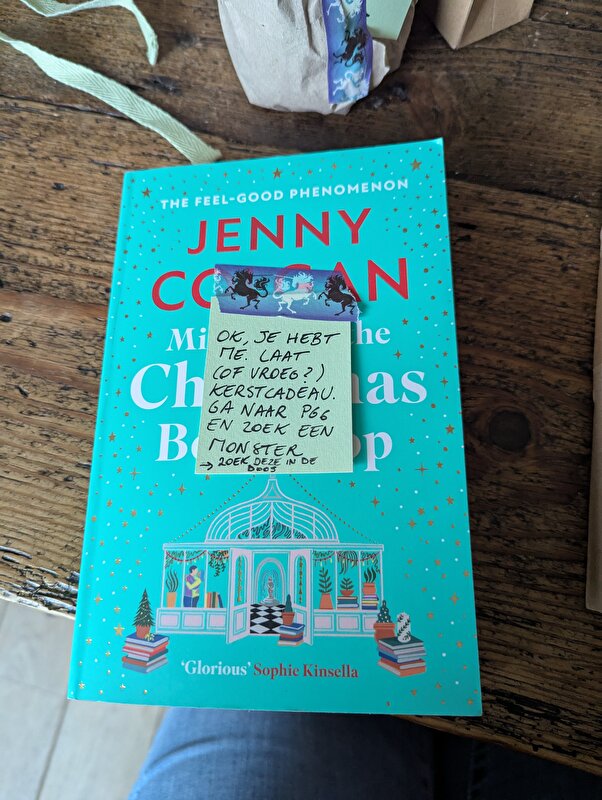 THE FEEL-GOOD PHENOMENON
JENNY
OK, JE HEBT
ME. LAAT
(OF VROEG?)
KERSTCADEAU.
GA NAAR P66
EN ZOEK EEN
MONSTER
→ ZOEK DEZE IN DE
DOOS
the
'Glorious' Sophie Kinsella